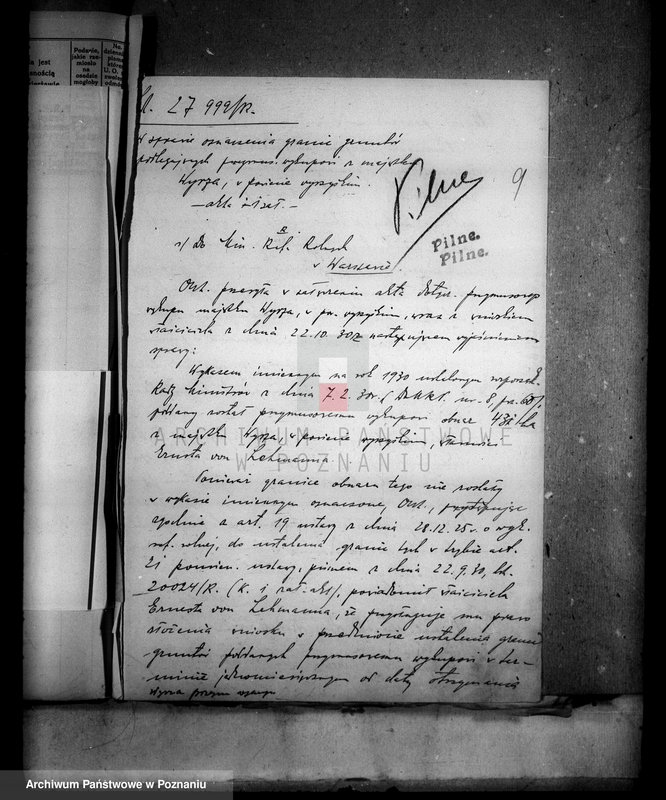 a jest
snością
Podanie,
jakie rze-
miosło
na
osadzie
mogłoby
Na
U. O.
27 999/R.
W sprawie oznaczenia granic gruntów
podlegających przymus. wykupowi z majątku
Wyrza, w powiecie wyrzyskim.
9
Pilne
Pilne.
Pilne.
1/ Do Min. Ref. Rolnych
w Warszawie.
OUZ. przesyła w załączeniu akta dotycz. przymusowego
wykupu majątku Wyrza, w pow. wyrzyskim, wraz z wnioskiem
właściciela z dnia 22.10.30 z następującem wyjaśnieniem
sprawy:
Wykazem imiennym na rok 1930 ustalonym rozporządz.
Rady Ministrów z dnia 7.2.30r. (Dz.U.R.P. nr. 8, poz.
poddany został przymusowemu wykupowi obszar ha
z majątku Wyrza, w powiecie wyrzyskim, własności
Ernsta von Lehmanna.
Ponieważ granice obszaru tego nie zostały
w wykazie imiennym oznaczone, OUZ.,
zgodnie z art. 19 ustawy z dnia 28.12.25. o wyk.
ref. rolnej, do ustalenia granic tych w trybie art.
21 pomien. ustawy, pismem z dnia 22.9.30, lb.
20024/R. (k. 1 zał. akt), powiadomił właściciela
Ernesta von Lehmanna, że przysługuje mu prawo
złożenia wniosku w przedmiocie ustalenia granic
gruntów poddanych przymusowemu wykupowi w ter-
minie jednomiesięcznym od daty otrzymania
ARCHIWUM PAŃSTWOWE
W POZNANIU
Archiwum Państwowe w Poznaniu